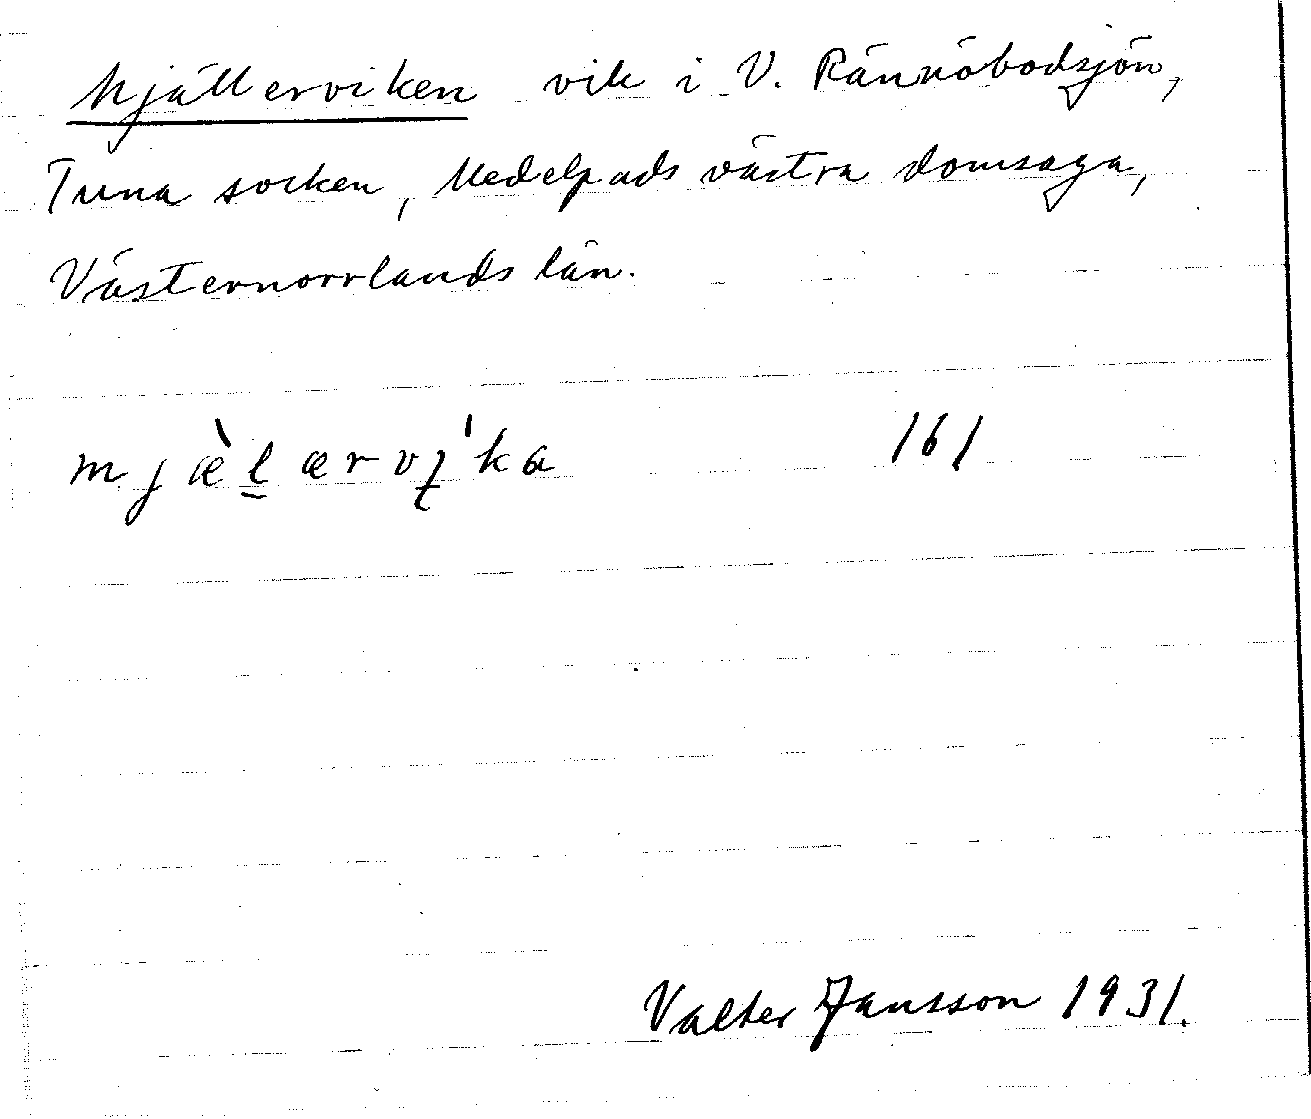 Mjällerviken vik i V. Rännöbodsjön,
Tuna socken, Medelpads västra domsaga,
Västernorrlands län.
mjæ̀l̠ærvi̠'ka 161
Valter Jansson 1931.